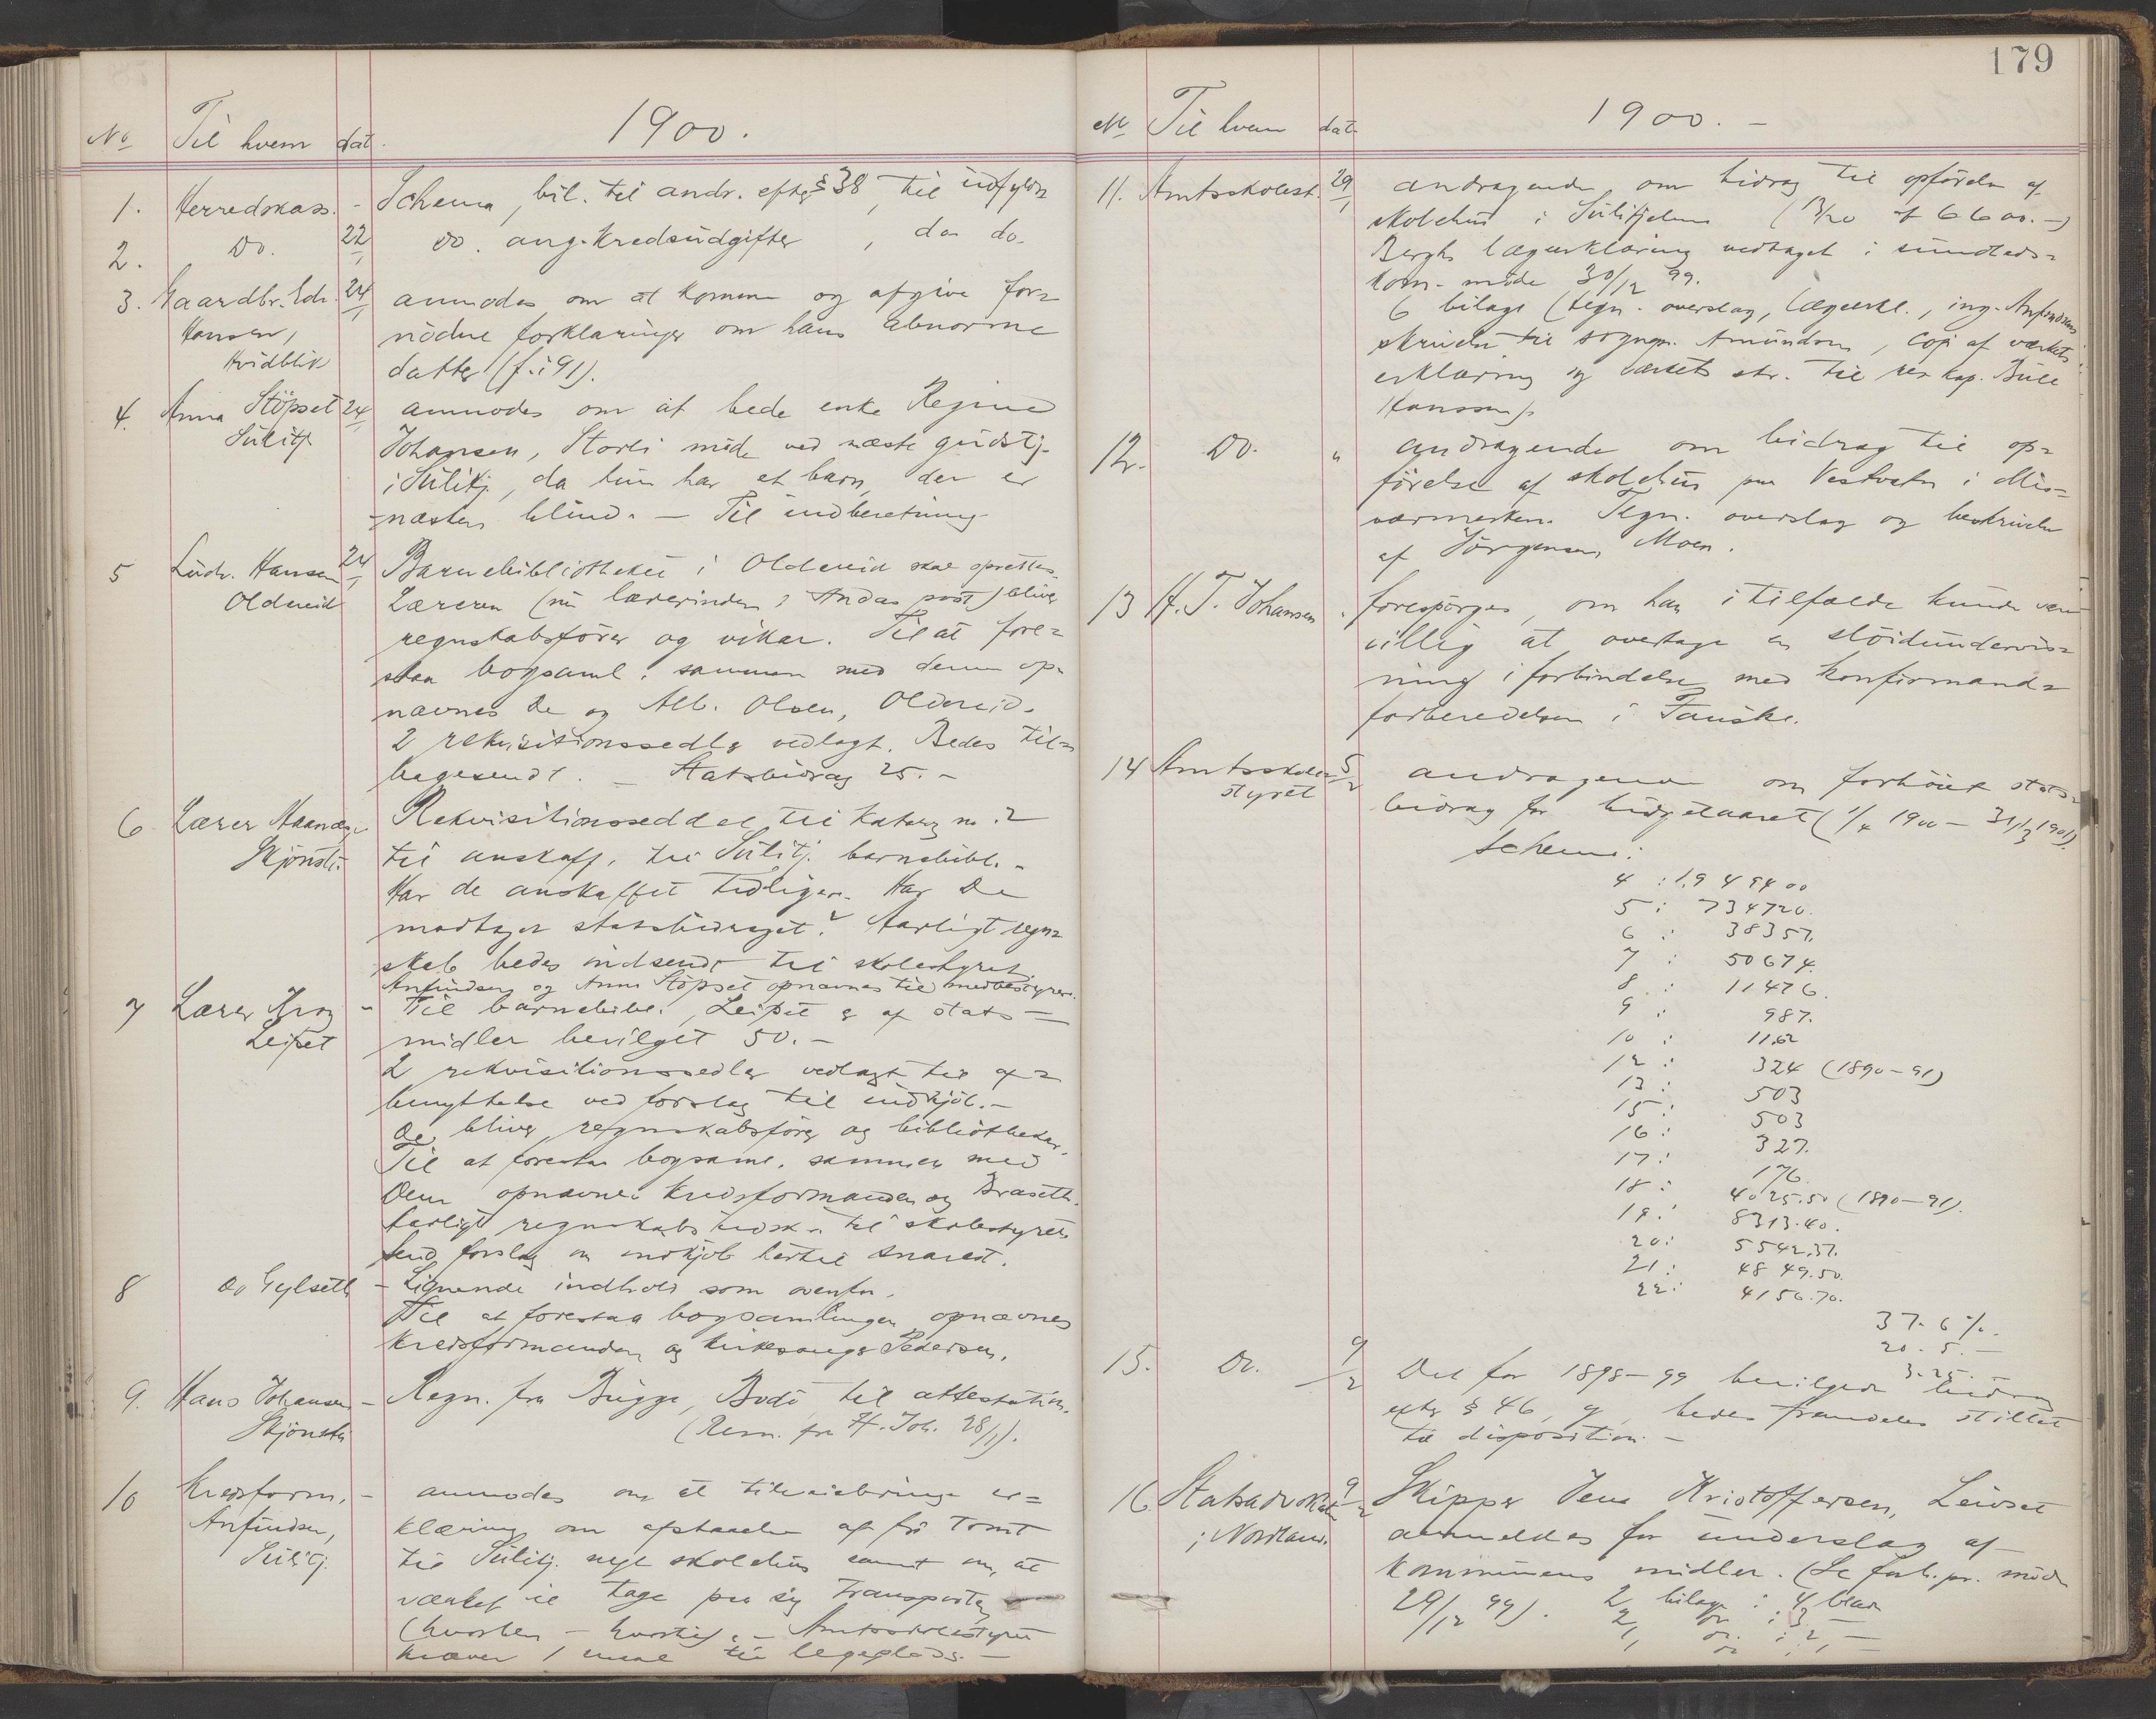 No Til hvem dat. 1900.
1. Herredskass. - Schema, bil. til andr. efter § 38, til udfyldn
2. Do. 22/1 do. ang. Kredsudgifter, do do.
3. Gaardbr. Edv. 24/1 anmodes om at komme og afgive for=
Hansen, nödne forklaringer om hans abnorme
Kvidblik datter (f. i 91).
4. Anna Stöpset 24/1 anmodes om at bede enke Regine
Sulitj. Johansen, Storli möde ved næste gudstj.
i Sulitj, da hun har et barn, der er
næsten blind. - Til indberetning
5 Ludv. Hansen 24/1 Barnebibliotheket i Oldereid skal oprettes.
Oldereid Læreren (nu lærerinden Andas post) bliver
regnskabsförer og vikar. Til at fore=
staa bogsaml. sammen med denne op=
nævnes De og Alb. Olsen, Oldereid.
2 rekvisitionssedler vedlagt. Bedes til=
bagesendt. - Statsbidrag 25.-
6 Lærer Haanæs - Rekvisitionsseddel til Katalog no. 2
Skjönsti. til anskaff. til Sulitj. barnebibl. -
Har de anskaffet tidligere. Har De
modtaget statsbidraget? Aarligt regn=
skab bedes indsendt til skolestyret.
Anfindsen og Anna Stöpset opnævnes til medbestyrere.
7 Lærer Krog - Til barnebibl. Leifset er af stats=
Leifset midler bevilget 50.-
2 rekvisitionssedler vedlagt til af=
benyttelse ved forslag til indkjöb.-
De bliver regnskabsförer og bibliothekar.
Til at forestaa bogsaml. sammen med
Dem opnævnes kredsformanden og Braseth.
Aarligt regnskabs til skolestyret.
Send forslag om indkjöb hertil snarest.
8 do Gylseth - Lignende indhold som ovenfor.
Til at forestaa bogsamlingen opnævnes
kredsformanden og kirkesanger Pedersen.
9. Hans Johansen - Regn. fra Bugge, Bodö, til attestation.
Skjönsti (Rem. fra H. Joh. 28/1).
10 Kredsform. - anmodes om at tilveiebringe er=
Anfindsen, klæring om afstaaelse af fri tomt
Sulitj. til Sulitj. nye skolehus samt om, at
værket vil tage paa sig transporten
(hvorlen - hvortil. - Amtsskolestyret
kræver 1 maal til legeplads. -
179
No Til hvem dat. 1900. -
11. Amtsskolest. 29/1 andragende om bidrag til opförelse af
skolehus i Sulitjelma (13/20 af 6600.-)
Berghs lægeerklæring vedtaget i sundheds=
kom. möde 30/12 99.
6 bilage (tegn. overslag, lægeerkl., ing. Anfindsens
skrivelse til sognepr. Amundsen, copi af værkets
erklæring og værkets skr. til res. kap. Bull
Hanssen).
12. Do. " andragende om bidrag til op=
förelse af skolehus paa Vestvatn i Mis=
værmarken. Tegn. overslag og beskrivelse
af Jörgensen, Moen.
13 H. T. Johansen . forespörges, om han i tilfælde kunde være
villig at overtage en slöidundervis=
ning i forbindelse med konfirmand=
forberedelsen i Fauske.
14 Amtsskole= 5/2 andragende om forhöiet stats=
styret bidrag for budgetaaret (1/4 1900 - 31/3 1901).
Schema:
4 : 1,9 49400
5 : 734720.
6 : 38357.
7 : 50674.
8 : 11476.
9 : 987.
10 : 11.62
12 : 324 (1890-91)
13 : 503
15 : 503
16 : 327.
17 : 176.
18 : 4025.50 (1890-91).
19 : 8313.40.
20 : 5542.37.
21 : 4849.50.
22 : 4156.70.
37.6 %.
20.5. -
3.25. -
15. Do. 9/2 Det for 1898-99 bevilgede bidrag
efter § 46, g, bedes fremdeles stillet
til disposition. -
16 Statsadvokaten 9/2 Skipper Jens Kristoffersen, Leivset
i Nordland. anmeldes for underslag af
kommunens midler. (Se forh. pr. möde
29/12 99). 2 bilage : 4 blad
2 do. : 3 -
1 do : 2 -